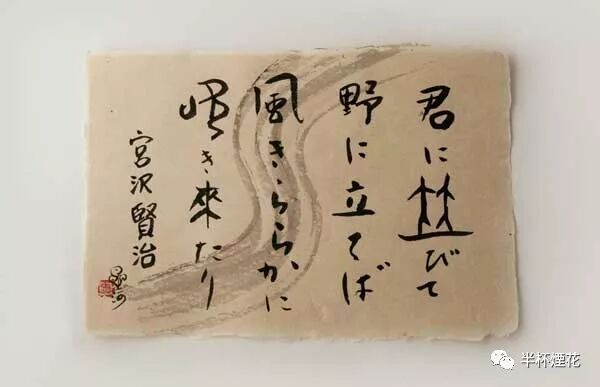 君に竝びて
野に立てば
風きららかに
吹き來たり
宮沢賢治
半杯煙花